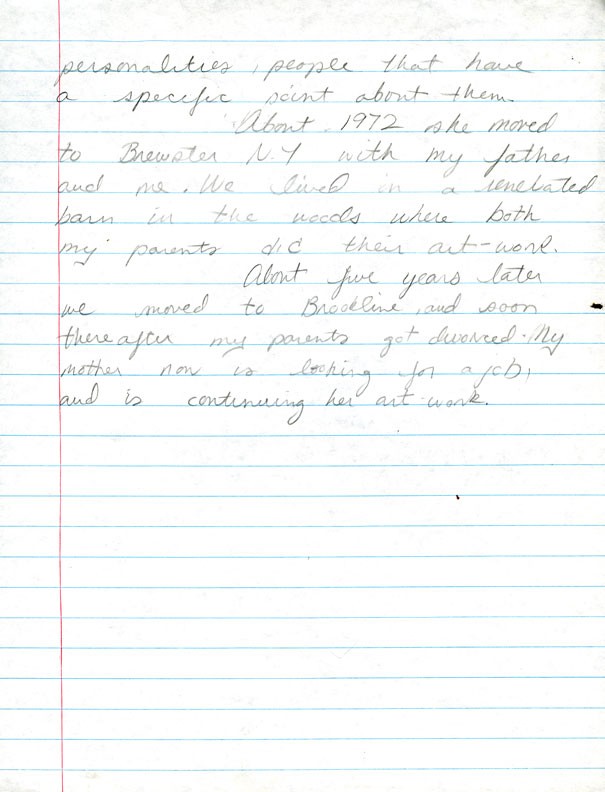 personalities, people that have
a specific point about them.
About 1972 she moved
to Brewster N.Y with my father
and me. We lived in a renebated
barn in the woods where both
my parents did their art-work.
About five years later
we moved to Brookline, and soon
there after my parents got divorced. My
mother now is looking for a job,
and is continuing her art-work.